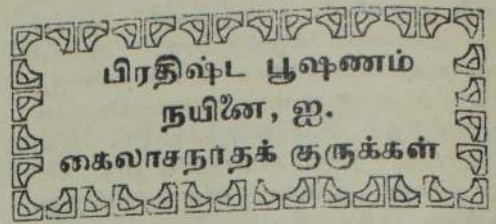 பிரதிஷ்ட பூஷணம்
நயினை, ஐ.
கைலாசநாதக் குருக்கள்